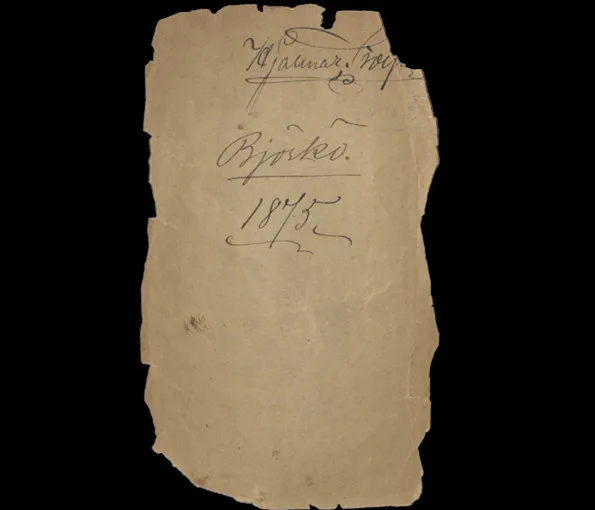 Hjalmar Stolpe
Björkö.
1875.